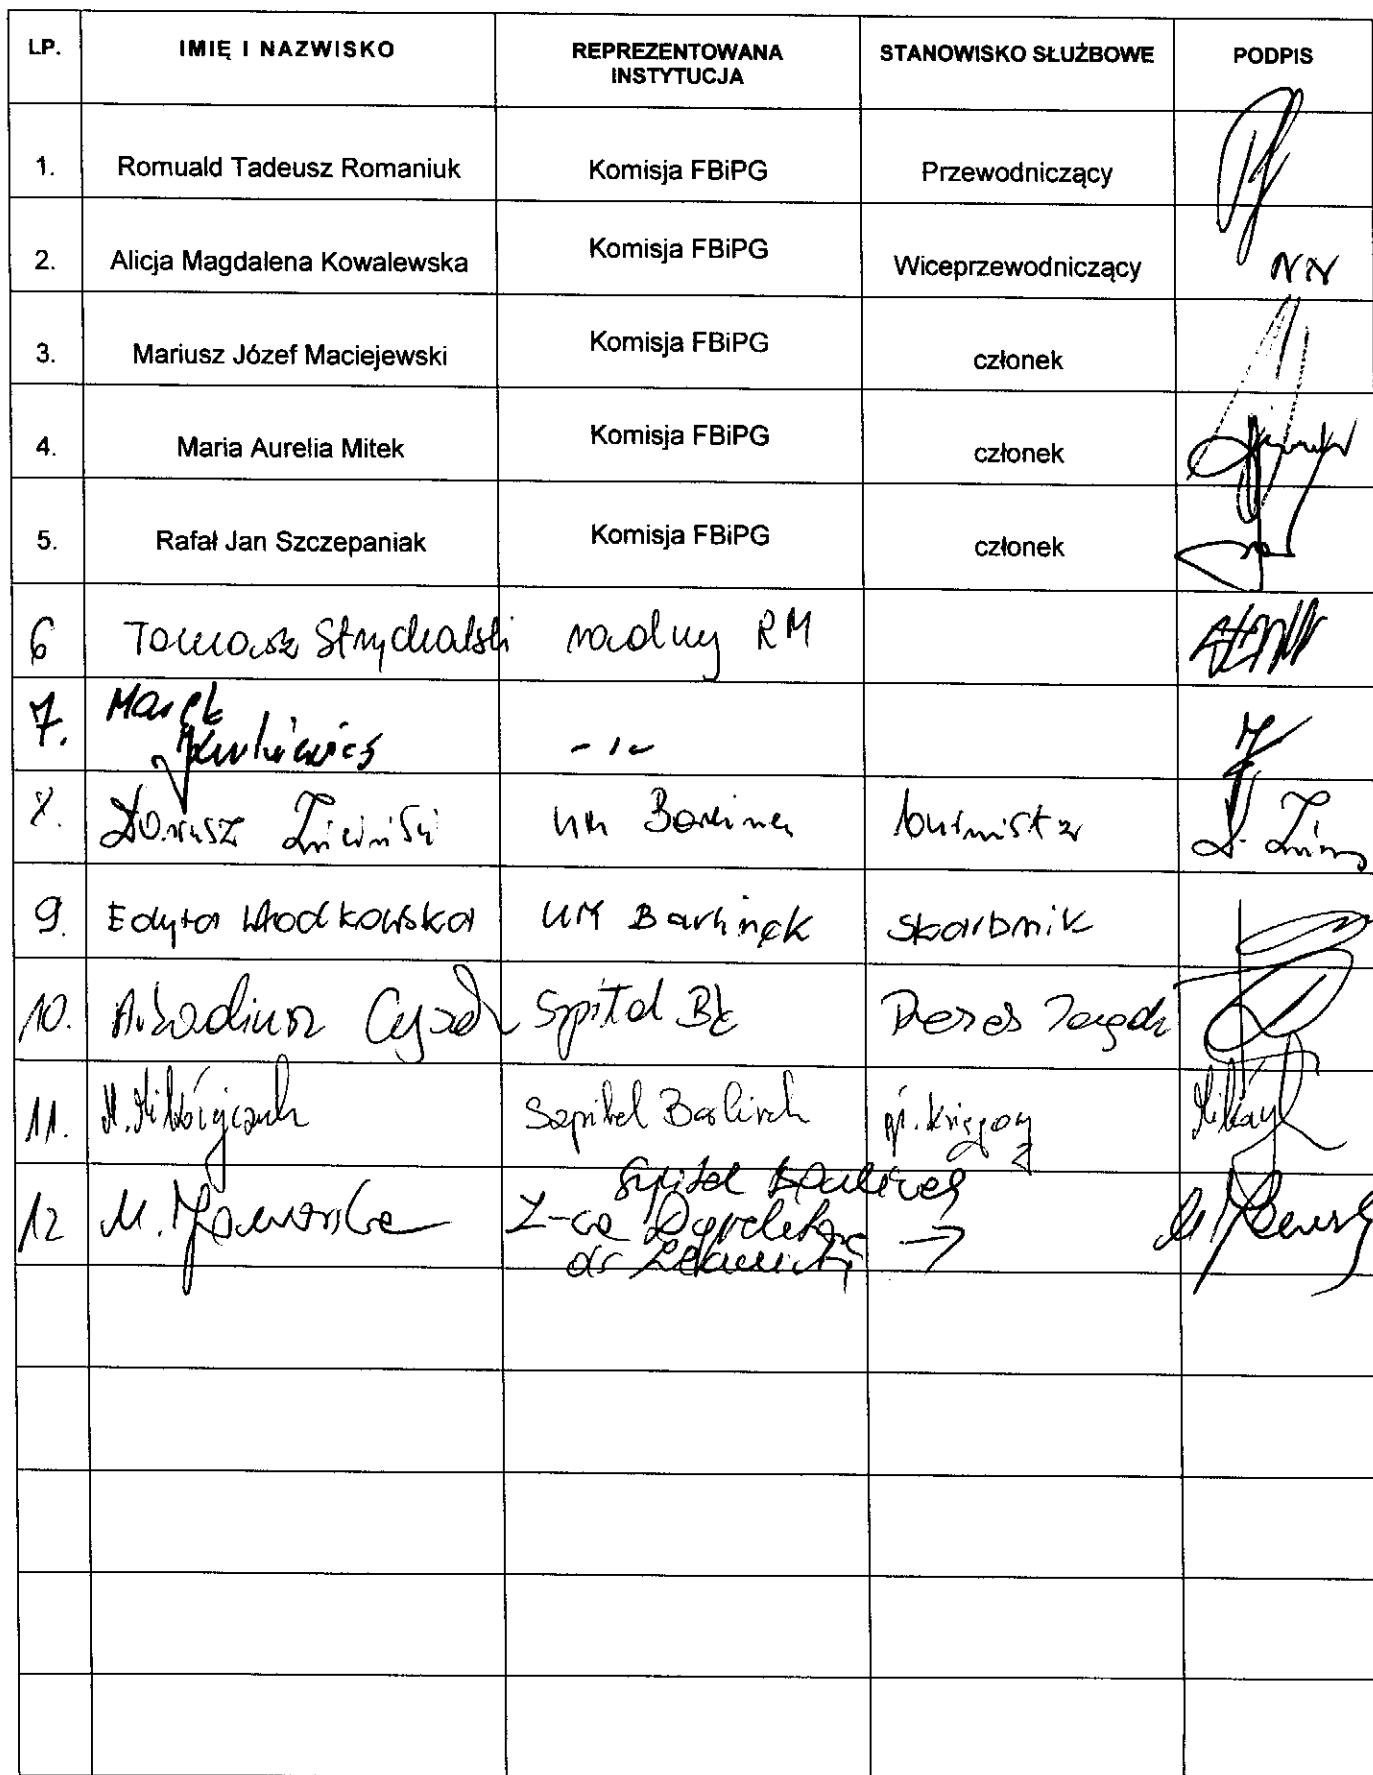 LP. IMIĘ I NAZWISKO REPREZENTOWANA INSTYTUCJA STANOWISKO SŁUŻBOWE PODPIS
1. Romuald Tadeusz Romaniuk Komisja FBiPG Przewodniczący
2. Alicja Magdalena Kowalewska Komisja FBiPG Wiceprzewodniczący NN
3. Mariusz Józef Maciejewski Komisja FBiPG członek
4. Maria Aurelia Mitek Komisja FBiPG członek
5. Rafał Jan Szczepaniak Komisja FBiPG członek
6 Tomasz Strychalski radny RM
7. Marek -"-
8. Dariusz Zieliński UM Barlinek burmistrz
9. Edyta Włodkowska UM Barlinek skarbnik
10. Arkadiusz Szpital Prezes Zarządu
11. M. Mikołajczak Szpital Barlinek gł. księgowy
12 M. Szpital Barlinek
Z-ca Dyrektora →
ds